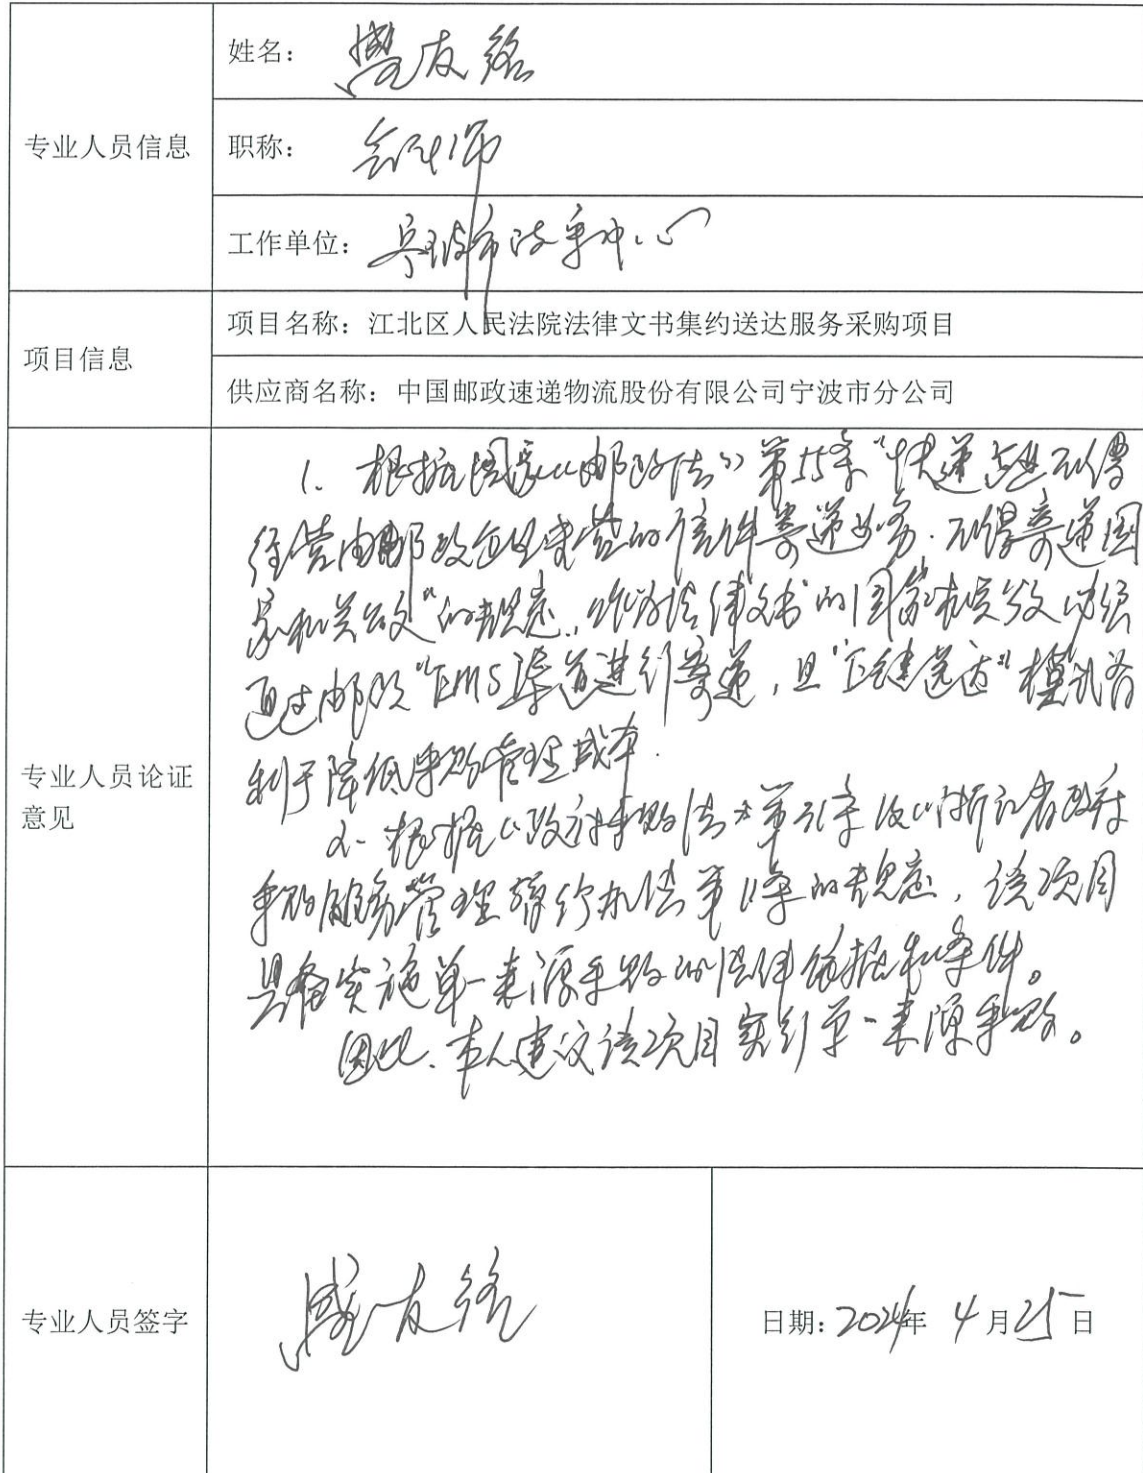 姓名：盛友铭
专业人员信息
职称：会计师
工作单位：宁波市会展中心
项目信息
项目名称：江北区人民法院法律文书集约送达服务采购项目
供应商名称：中国邮政速递物流股份有限公司宁波市分公司
专业人员论证
意见
1. 根据国家《邮政法》第55条“快递企业不得
经营由邮政企业专营的信件寄递业务.不得寄递国
家机关公文”的规定,作为法律文书的国家机关公文必须
通过邮政“EMS渠道进行寄递,且“送达”模式有
利于降低采购管理成本.
2. 根据《政府采购法》第31条及《浙江省政府
采购服务管理暂行办法第11条的规定,该项目
具备实施单一来源采购的法律依据和条件。
因此.本人建议该项目实行单一来源采购。
专业人员签字
盛友铭
日期:2024年 4月25日